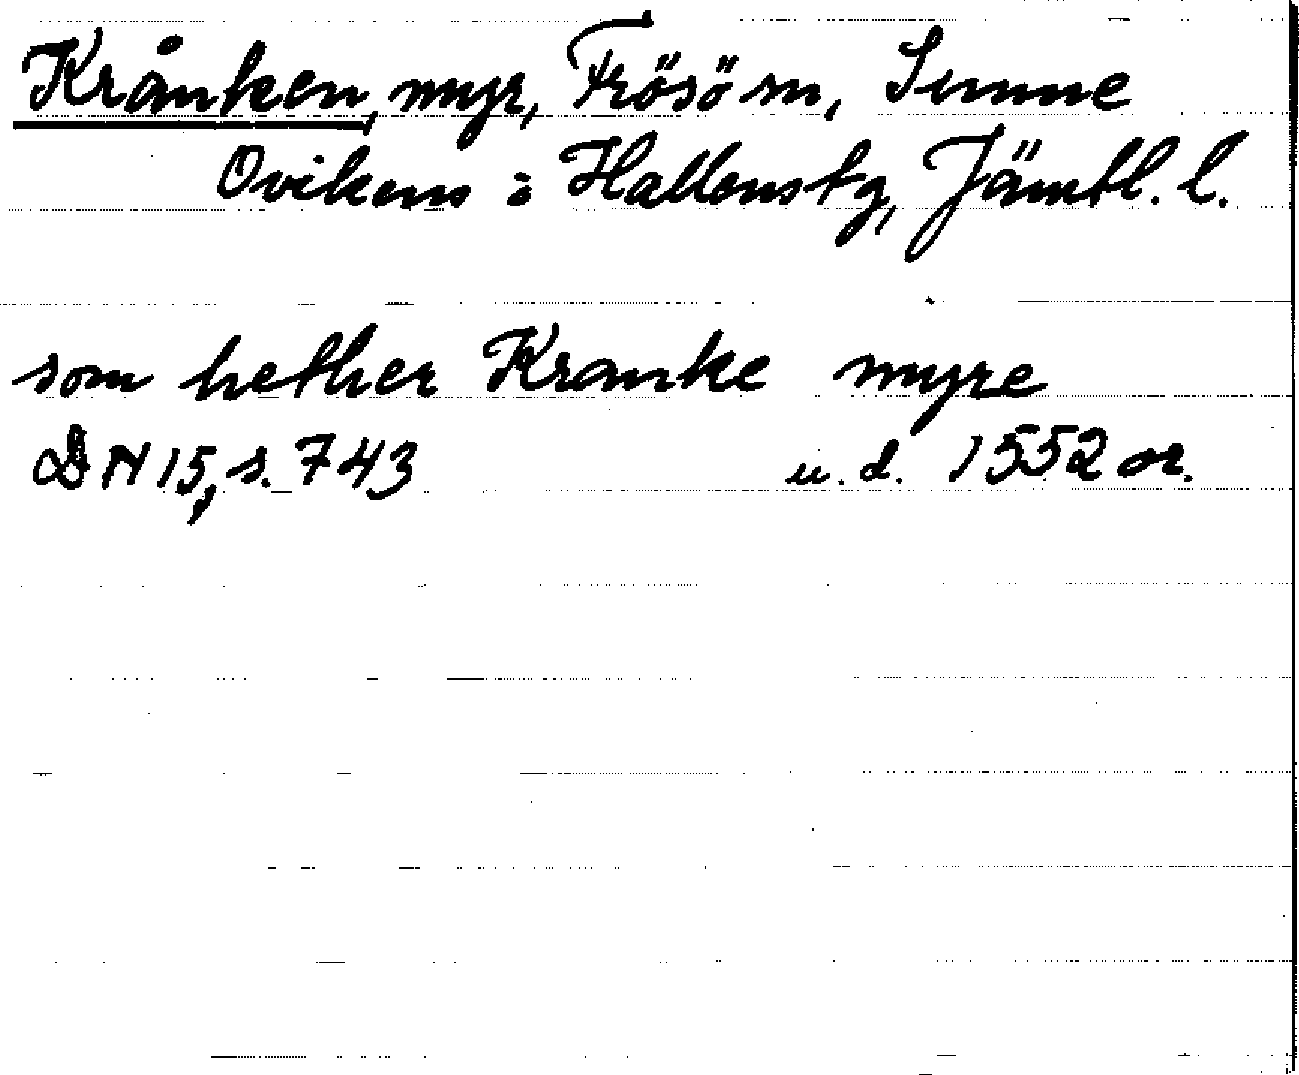 Krånken, myr, Frösö sn, Sunne
Ovikens o Hallens tg, Jämtl. l.
som hether Kranke myre
DN 15, s. 743 u. d. 1552 or.